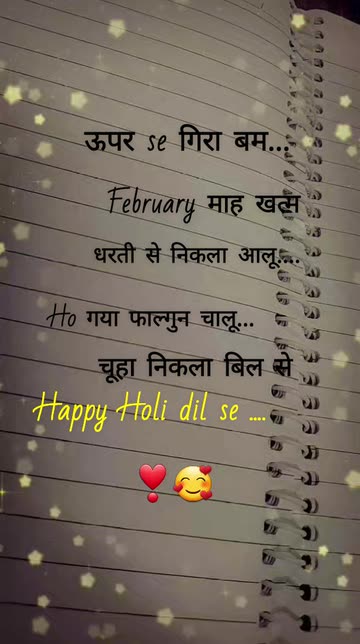 ऊपर se गिरा बम...
February माह खत्म
धरती से निकला आलू....
Ho गया फाल्गुन चालू...
चूहा निकला बिल से
Happy Holi dil se ....
❣️🥰